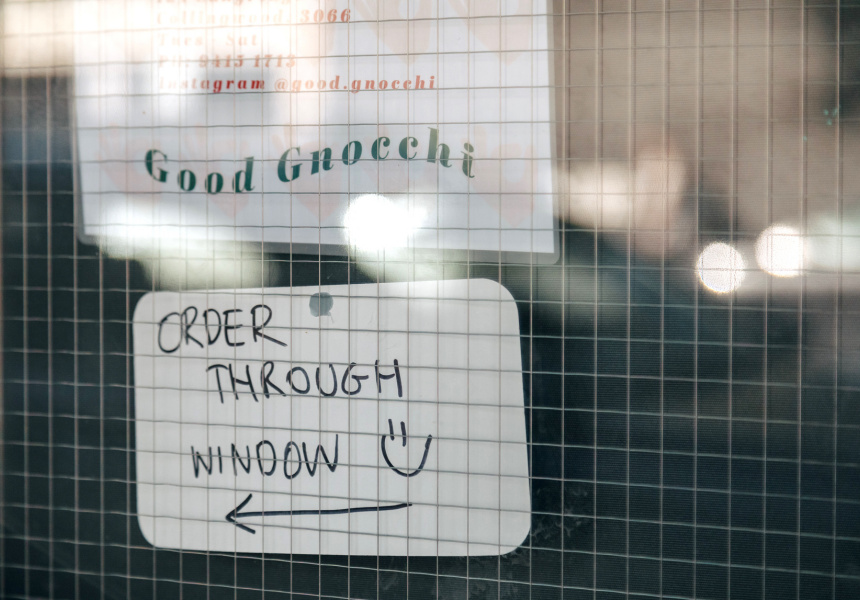 Collingwood 3066
Tues - Sat
PH: 9415 1713
Instagram @good.gnocchi
Good Gnocchi
ORDER
THROUGH
WINDOW